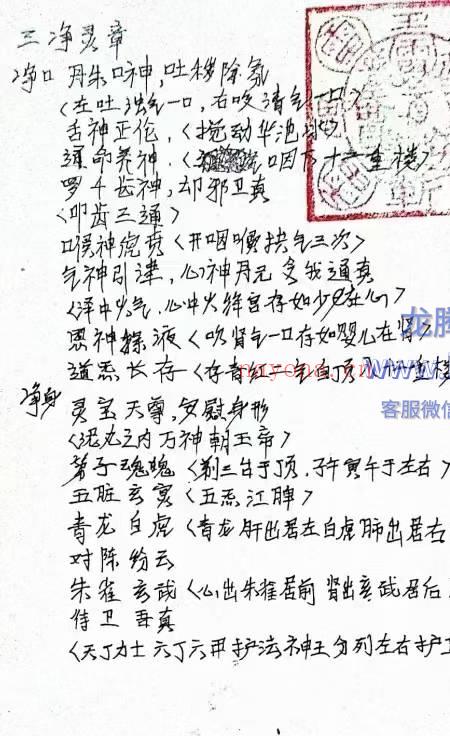 三净灵章
净口 丹朱口神,吐秽除氛
<左吐浊气一口,右咬清气一口>
舌神正伦,<搅动华池水>
通命养神,<咽下十二重楼>
罗千齿神,却邪卫真
<叩齿三通>
喉神虎贲<开咽喉拱气三次>
气神引津,心神丹元 令我通真
<泽中火气,心中火绛宫存如少在心>
思神探液<吹肾气一口存如婴儿在肾>
道炁长存<存青红一气自顶入十二重楼
净身 灵宝天尊,安慰身形
<泥丸之内万神朝玉帝>
弟子魂魄<刺三台于顶,子午寅午于左右>
五脏玄冥<五炁江脾>
青龙白虎<青龙肝出居左白虎肺出居右
对陈纷云
朱雀玄武<心出朱雀居前 肾出玄武居后
侍卫吾真
<天丁力士 六丁六甲护法神王分列左右护卫
龙腾
www.
nayona.cn
客服微信